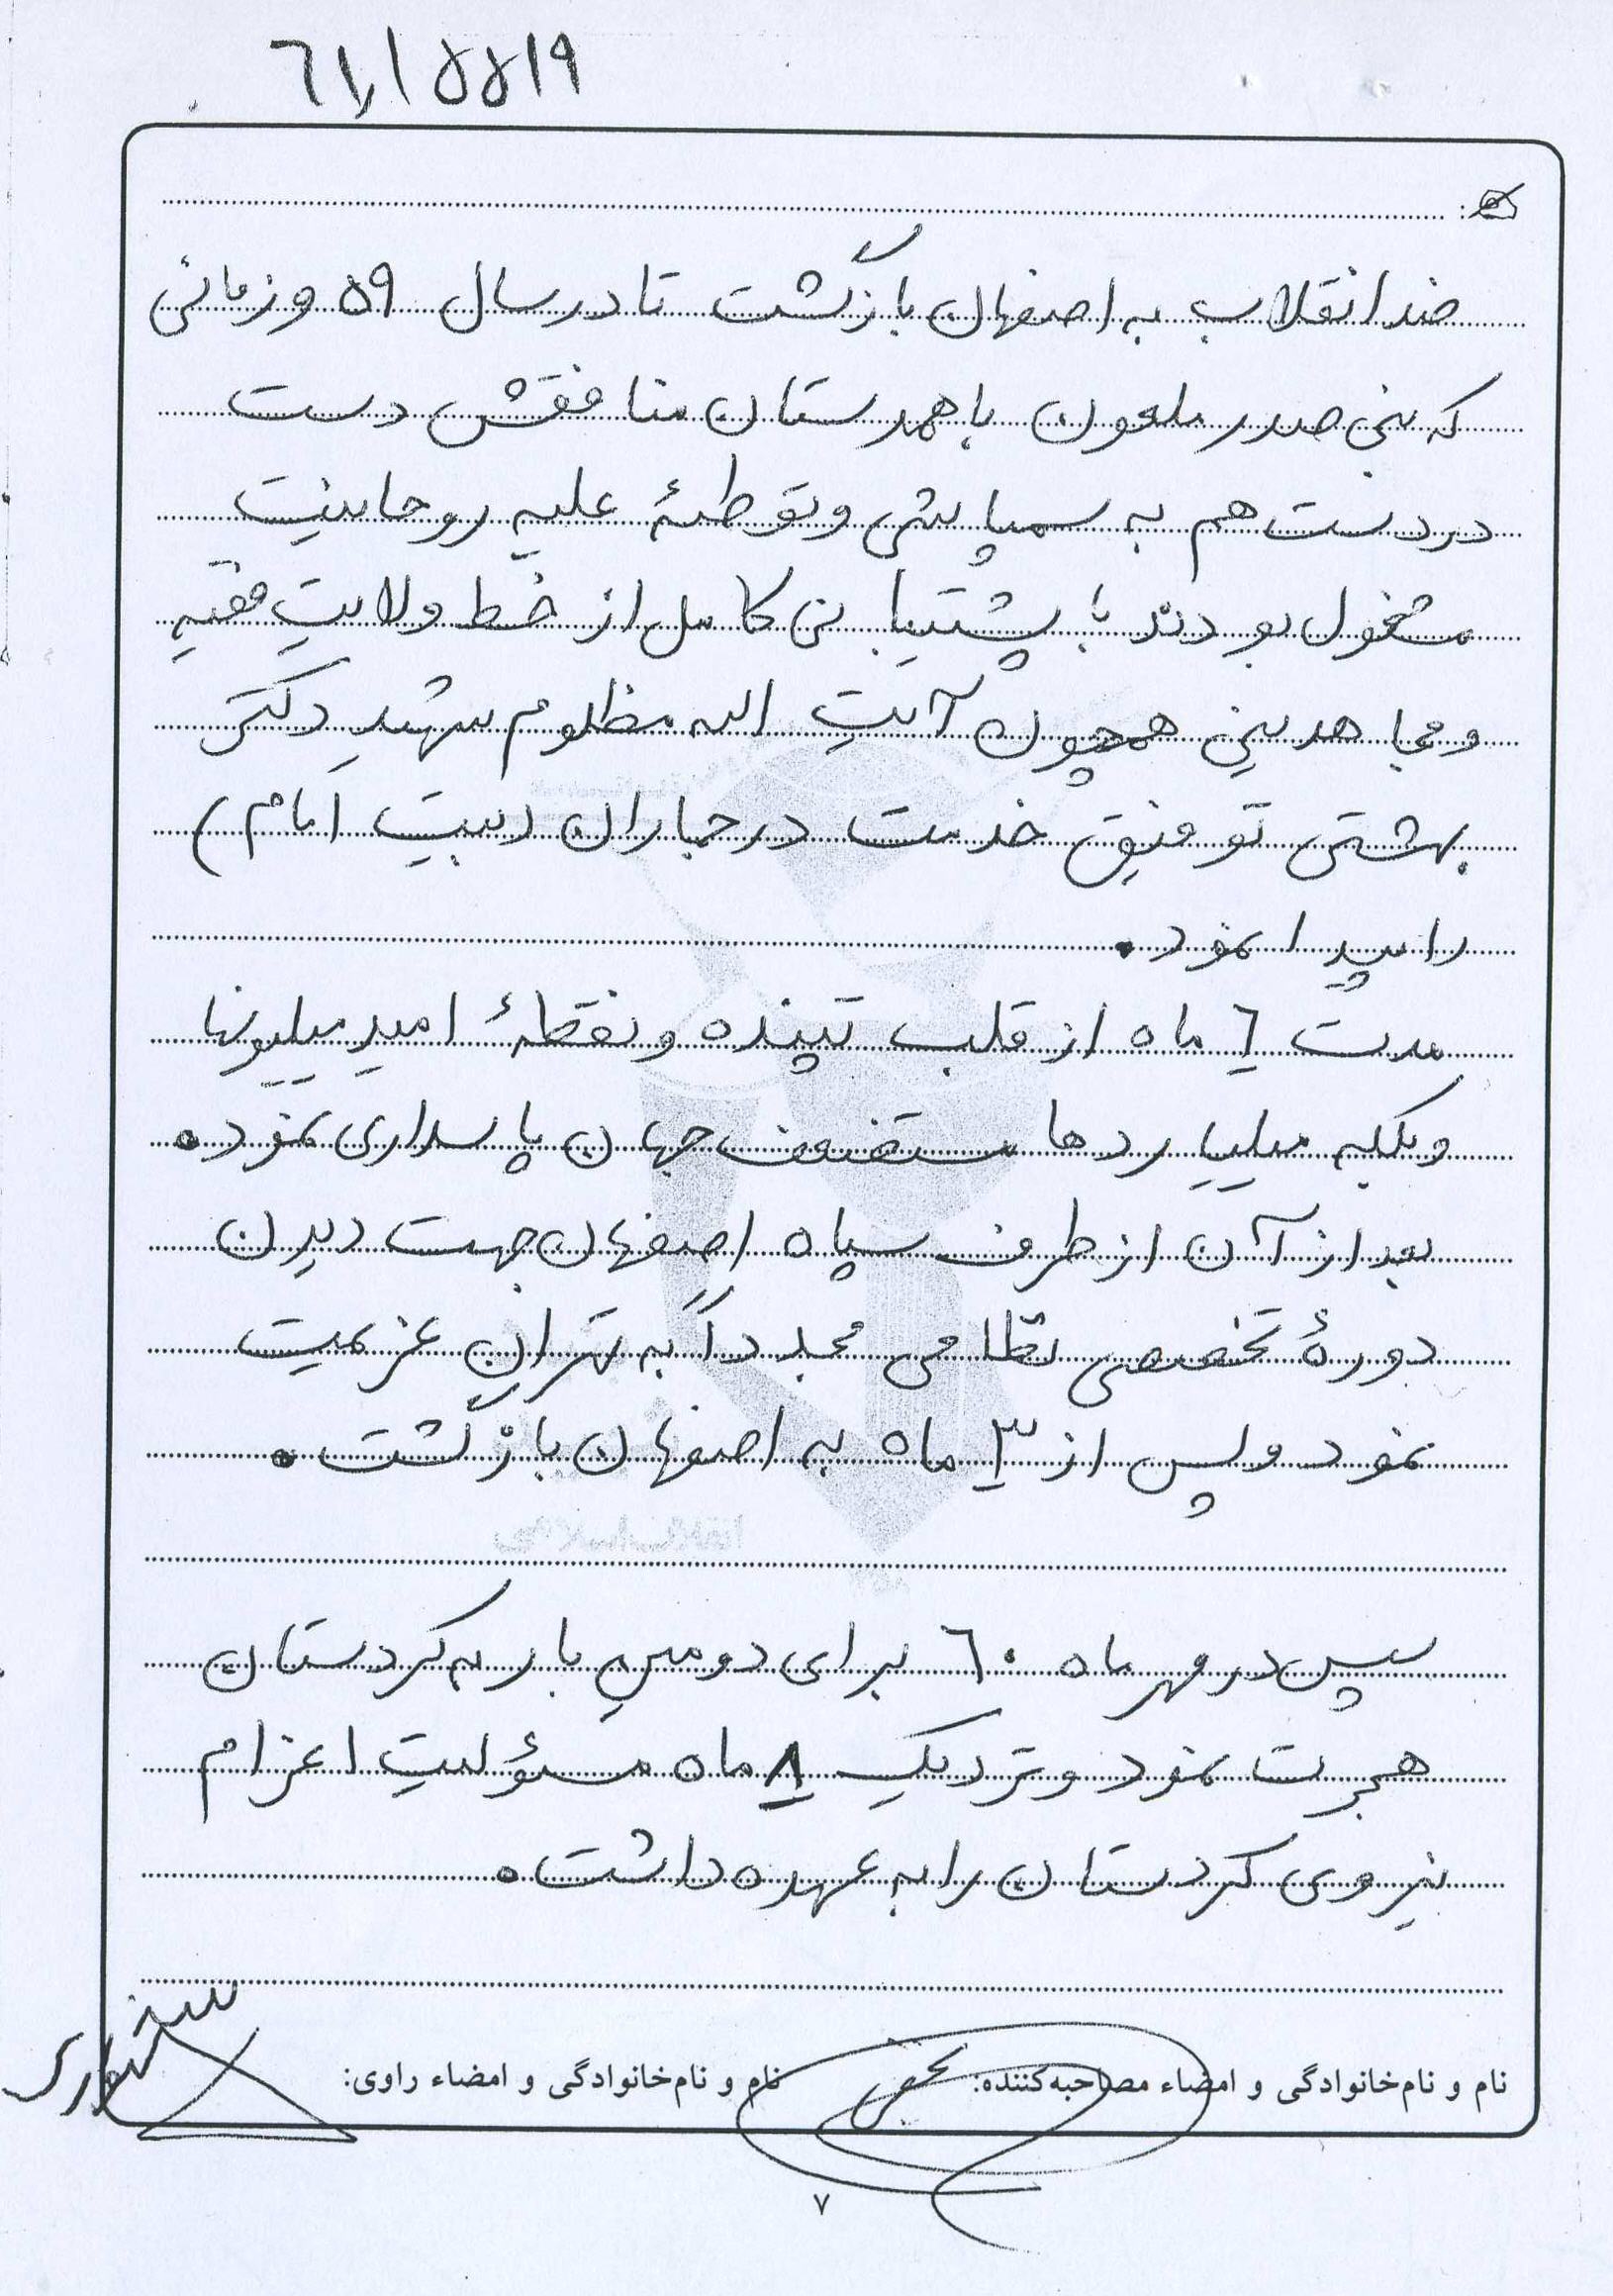 ۶۱۱۵۵۱۹
ضد انقلاب به اصفهان بازگشت تا در سال ۵۹ و زمانی
که بنی صدر ملعون با همدستان منافقش دست
در دست هم به سمپاشی و توطئهٔ علیه روحانیت
مشغول بودند با پشتیبانی کامل از خط ولایت فقیه
و مجاهدینی همچون آیت الله مظلوم شهید دکتر
بهشتی توفیق خدمت در جماران (بیت امام)
را پیدا نمود.
مدت ۶ ماه از قلب تپنده و نقطهٔ امید میلیونها
و بلکه میلیاردها مستضعف جهان پاسداری نمود.
بعد از آن از طرف سپاه اصفهان جهت دیدن
دورهٔ تخصصی نظامی مجدداً به تهران عزیمت
نمود و پس از ۳ ماه به اصفهان بازگشت.
سپس در مهر ماه ۶۰ برای دومین بار به کردستان
هجرت نمود و نزدیک ۸ ماه مسئولیت اعزام
نیروی کردستان را به عهده داشت.
نام و نام‌خانوادگی و امضاء مصاحبه‌کننده: نام و نام‌خانوادگی و امضاء راوی:
۷